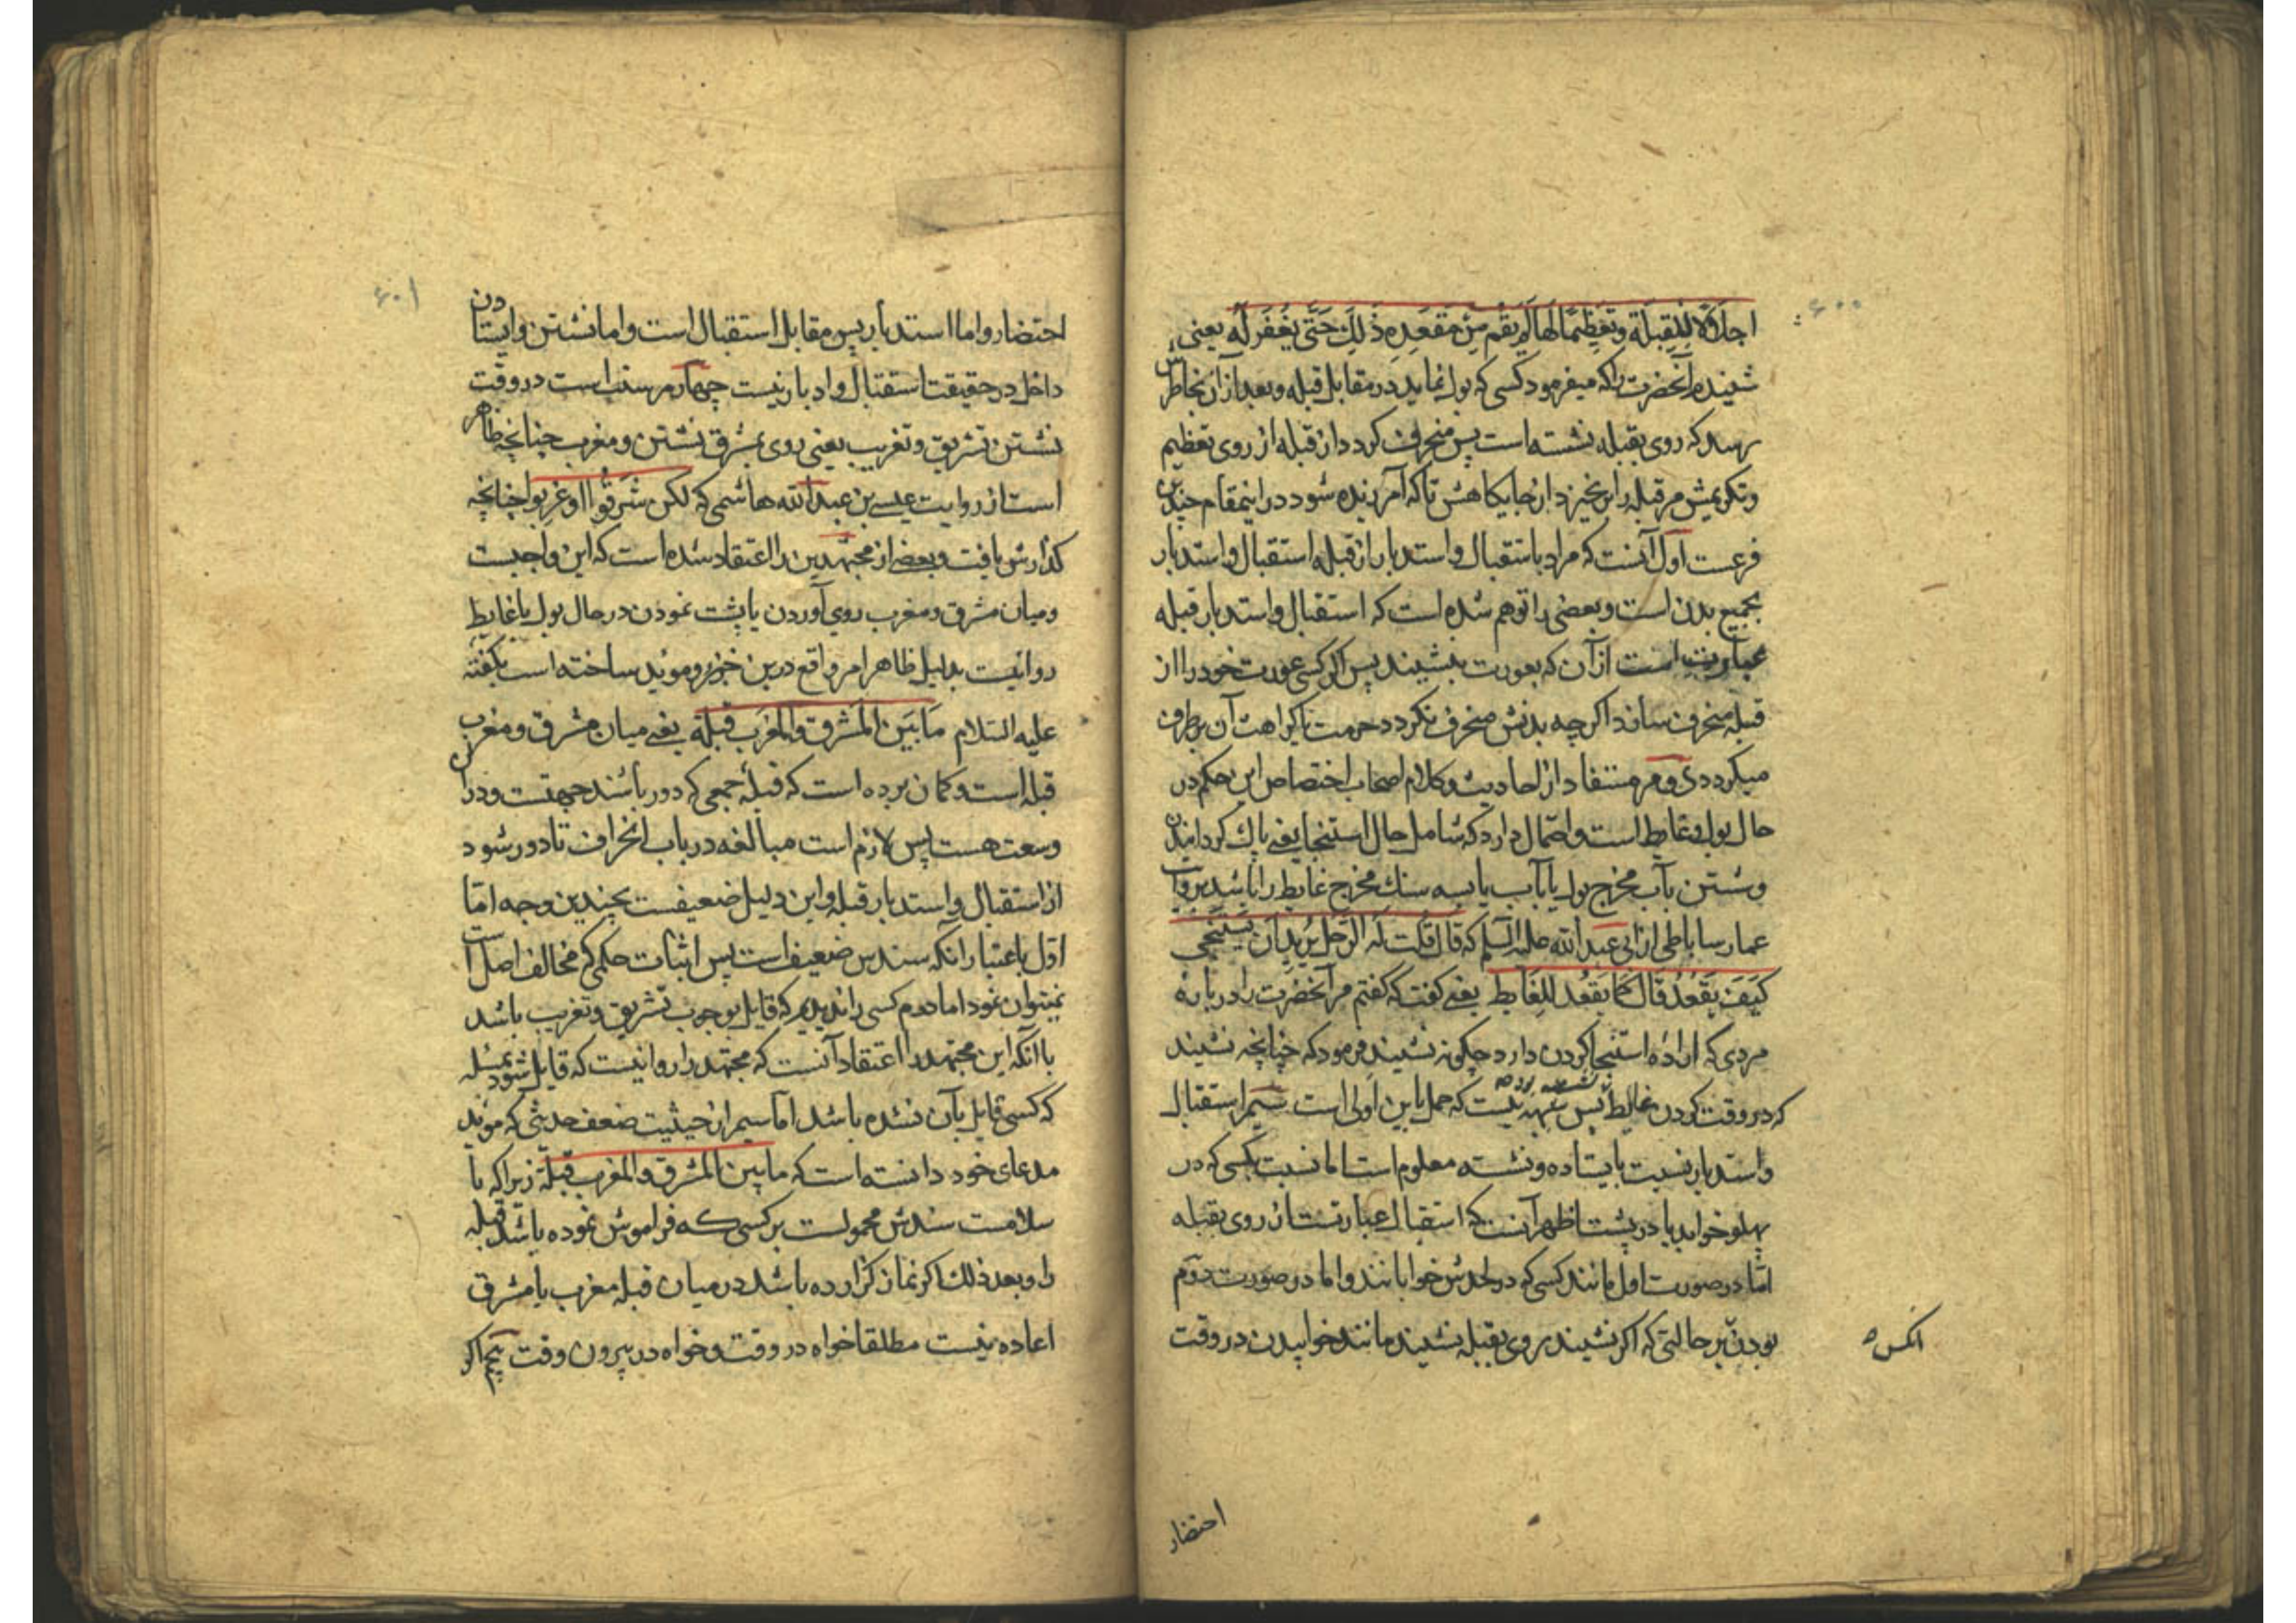 ۶۰۰
اجلالا للقبلة وتعظیما لها لم یقم من مقعده ذلك حتی یغفر له یعنی
شنیدم آنحضرت را که میفرمود کسی که بول نماید در مقابل قبله و بعد از آن بخاطرش
رسد که روی بقبله نشسته است پس منحرف کردد از قبله از روی تعظیم
وتکریمش مر قبله را بر نخیزد از جایکاهش تا که آمرزیده شود در اینمقام چندین
فرعست اول آنست که مراد باستقبال و استدبار از قبله استقبال و استدبار
بجمیع بدن است و بعضی را توهم شده است که استقبال و استدبار قبله
عبارتست از آن که بعورت بنشیند پس اکر کسی عورت خود را از
قبله منحرف سازد اکرچه بدنش منحرف نکردد حرمت یا کراهت آن برطرف
میکردد دوم مستفاد از احادیث و کلام اصحاب اختصاص این حکم در
حال بول و غایط است و احتمال دارد که شامل حال استنجا یعنی پاك کردانیدن
وشستن بآب مخرج بول یا بآب یا بسه سنك مخرج غایط را باشد بروایت
عمار ساباطی از ابی عبد الله علیه السلم که قال قلت له الرجل یرید ان یستنجی
کیف یقعد قال کما یقعد للغایط یعنی کفت که کفتم مر آنحضرت را در باره
مردی که اراده استنجا کردن دارد چکونه نشیند فرمود که چنانچه نشیند
که در وقت کردن غایط پس شبهه نیست که حمل باین اولی است سیم استقبال
واستدبار نسبت بایستاده و نشسته معلوم است اما نسبت بکسی که در
پهلو خوابد یا در پشت اظهر آنست که استقبال عبارتست از روی بقبله
اما در صورت اول مانند کسی که در لحدش خوابانند و اما در صورت دوم
بودن بر حالتی که اکر نشیند روی بقبله نشیند مانند خوابیدن در وقت
انکس ه
احتضار
۶۰۱
احتضار و اما استدبار پس مقابل استقبال است و اما نشستن وایستادن
داخل در حقیقت استقبال و ادبار نیست چهارم سنت است در وقت
نشستن تشریق و تغریب یعنی روی بمشرق نشستن و مغرب چنانچه ظاهر
است از روایت عیسی بن عبد الله هاشمی که لکن شرقوا او غربوا چنانچه
کذارش یافت و بعضی از مجتهدین را اعتقاد شده است که این واجبست
ومیان مشرق و مغرب روی آوردن یا پشت نمودن در حال بول یا غایط
روا نیست بدلیل ظاهر امر واقع درین خبر و موید ساخته است بکفته
علیه السلام ما بین المشرق والمغرب قبلة یعنی میان مشرق و مغرب
قبله است و کمان برده است که قبلهٔ جمعی که دور باشند جهتست و در آن
وسعت هست پس لازم است مبالغه در باب انحراف تا دور شود
از استقبال و استدبار قبله و این دلیل ضعیفست بچندین وجه اما
اول باعتبار انکه سندش ضعیف است پس اثبات حکمی که مخالف اصل است
نمیتوان نمود اما دوم کسی را ندیدیم که قایل بوجوب تشریق و تغریب باشد
با آنکه این مجتهد را اعتقاد آنست که مجتهد را روا نیست که قایل شود بمسئله
که کسی قایل بآن نشده باشد اما سیم از حیثیت ضعف حدیثی که موید
مدعای خود دانسته است که ما بین المشرق والمغرب قبلة زیرا که با
سلامت سندش محمولست بر کسی که فراموش نموده باشد قبله
را و بعد ذلك اکر نماز کزارده باشد در میان قبله مغرب یا مشرق
اعاده نیست مطلقا خواه در وقت و خواه در بیرون وقت پنجم اکر